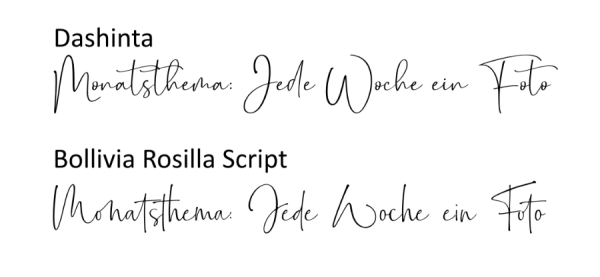 Dashinta
Monatsthema: Jede Woche ein Foto
Bollivia Rosilla Script
Monatsthema: Jede Woche ein Foto